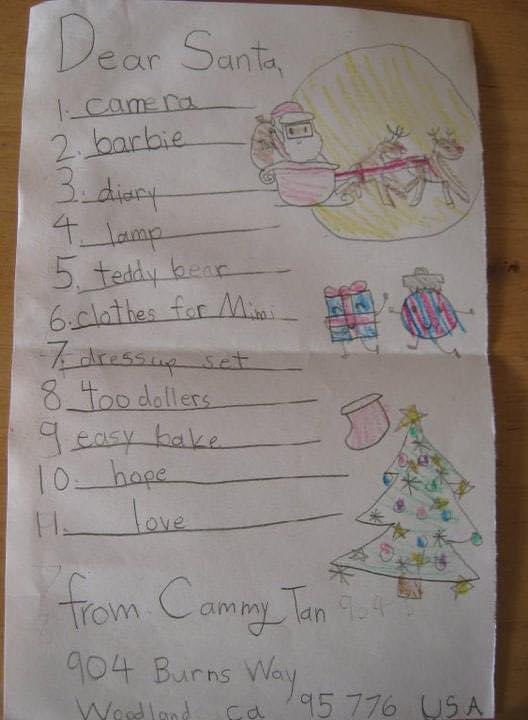 Dear Santa,
1. camera
2. barbie
3. diary
4. lamp
5. teddy bear
6. clothes for Mimi
7. dress up set
8 400 dollers
9 easy bake
10. hope
11. love
from Cammy Tan 904
904 Burns Way
Woodland ca 95776 USA